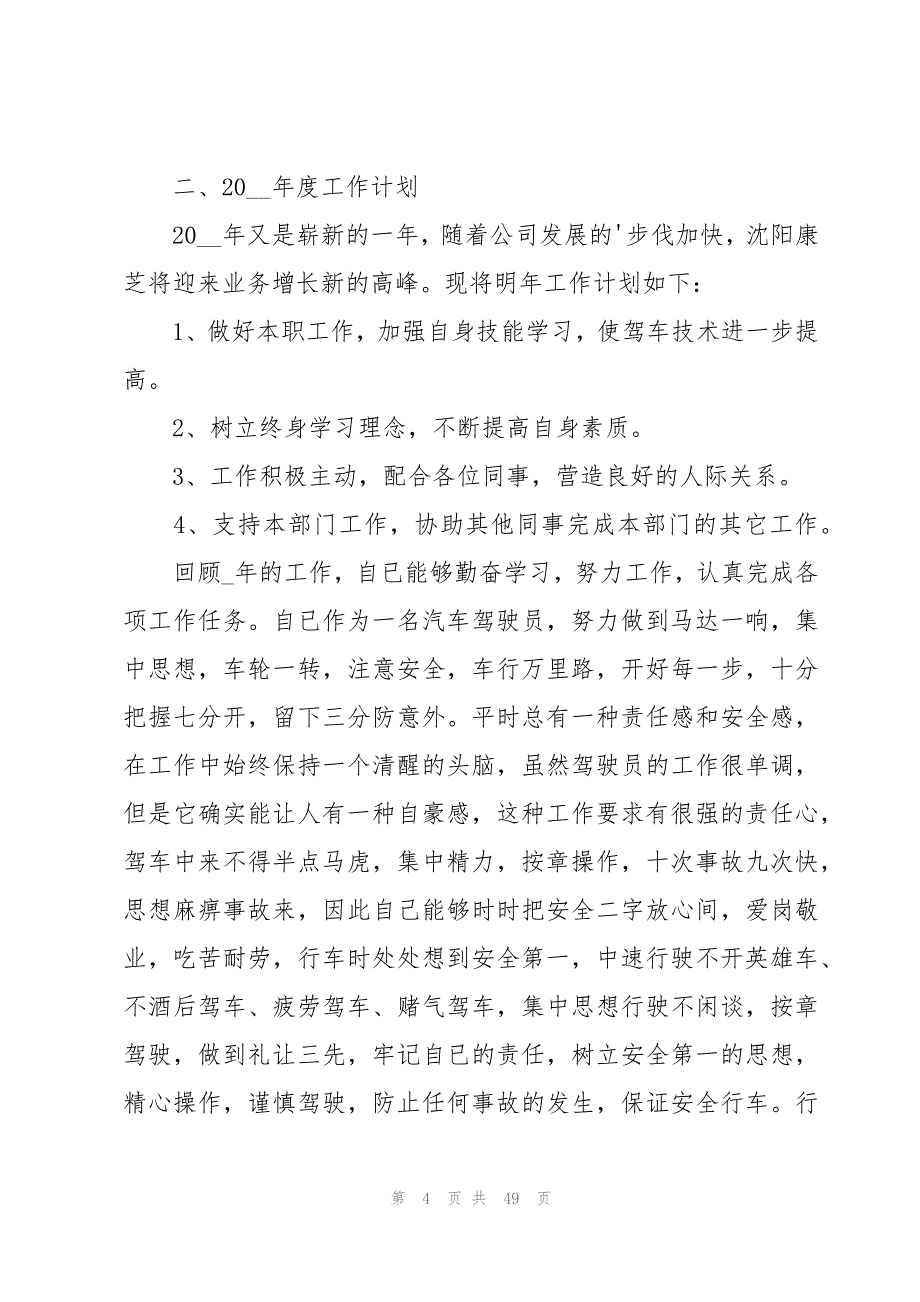 二、20__年度工作计划
20__年又是崭新的一年，随着公司发展的'步伐加快，沈阳康
芝将迎来业务增长新的高峰。现将明年工作计划如下：
1、做好本职工作，加强自身技能学习，使驾车技术进一步提
高。
2、树立终身学习理念，不断提高自身素质。
3、工作积极主动，配合各位同事，营造良好的人际关系。
4、支持本部门工作，协助其他同事完成本部门的其它工作。
回顾_年的工作，自已能够勤奋学习，努力工作，认真完成各
项工作任务。自已作为一名汽车驾驶员，努力做到马达一响，集
中思想，车轮一转，注意安全，车行万里路，开好每一步，十分
把握七分开，留下三分防意外。平时总有一种责任感和安全感，
在工作中始终保持一个清醒的头脑，虽然驾驶员的工作很单调，
但是它确实能让人有一种自豪感，这种工作要求有很强的责任心，
驾车中来不得半点马虎，集中精力，按章操作，十次事故九次快，
思想麻痹事故来，因此自己能够时时把安全二字放心间，爱岗敬
业，吃苦耐劳，行车时处处想到安全第一，中速行驶不开英雄车、
不酒后驾车、疲劳驾车、赌气驾车，集中思想行驶不闲谈，按章
驾驶，做到礼让三先，牢记自已的责任，树立安全第一的思想，
精心操作，谨慎驾驶，防止任何事故的发生，保证安全行车。行
第 4 页 共 49 页